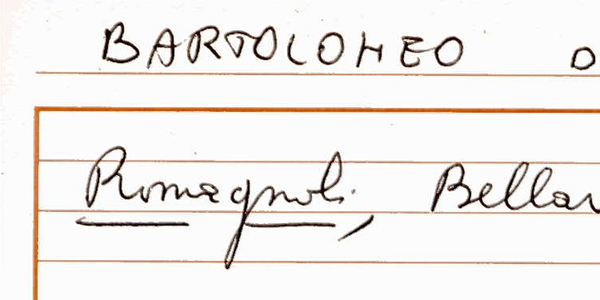 BARTOLOMEO D
Romagnoli, Bellar